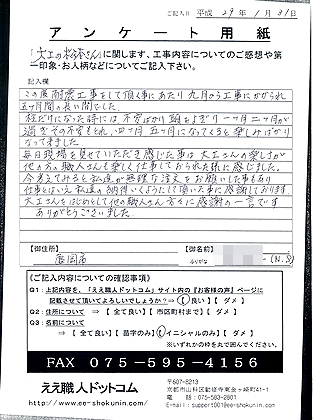 ご記入日 平成 29年 1月 31日
アンケート用紙
「大工の 松本さん」に関します、工事内容についてのご感想や第
一印象・お人柄などについてご記入下さい。
記入欄
この度耐震工事をして頂く事にあたり九月から工事にかかられ
五ヶ月間の長い間でした。
柱だけになった時には、不安ばかり頭をよぎり一ヶ月二ヶ月が
過ぎその不安もとれ、四ヶ月五ヶ月になってくると楽しみばかり
なって来ました。
毎日現場を見せていただき感じた事は大工さんの厳しさが
他の方、職人さんも楽しく仕事しておられた様に感じました。
今考えてみると私達が無理な注文をお願いした事もあり
仕事とはいえ私達の納得いくようにして頂いた事に感謝しております
大工さんをはじめとして他の職人さん方々に感謝の一言です
ありがとうございました。
【御住所】
【御名前】
長岡市
ふりがな
(N.S)
<ご記入内容についての確認事項>
Q1:上記内容を、「ええ職人ドットコム」サイト内の『お客様の声』ページに
記載させて頂いてよろしいでしょうか?→ (1 良い) 【 ダメ 】
Q2:住所について → 【 全て良い 】【 市区町村まで 】【 ダメ 】
Q3:名前について
→ 【 全て良い 】【 苗字のみ 】(1 イニシャルのみ) 【 ダメ 】
※いずれかの枠を丸で囲んでください。
FAX 075-595-4156
ええ職人ドットコム
http://www.ee-shokunin.com/
〒607-8213
京都市山科区勧修寺東金ヶ崎町41-1
電 話:075-583-2801
E-mail:support001@ee-shokunin.com